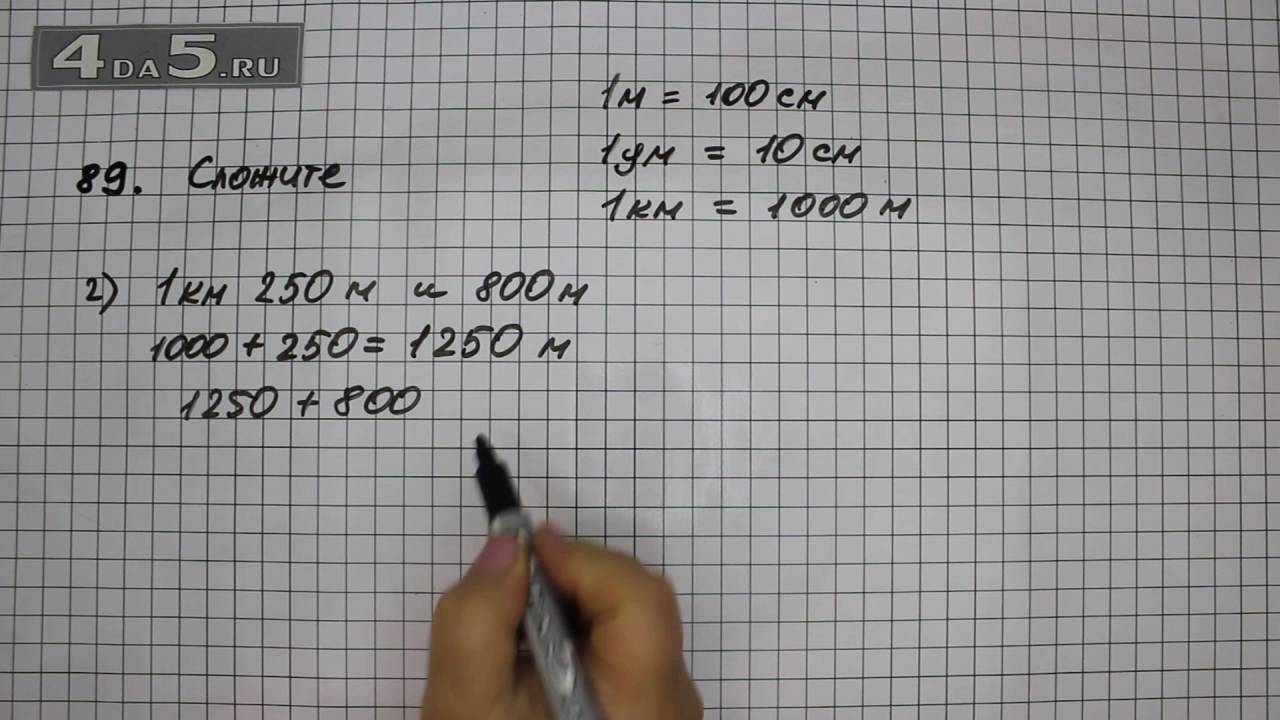 4DA5.RU
1м = 100 см
1дм = 10 см
1км = 1000 м
89. Сложите
2) 1км 250 м и 800 м
1000 + 250 = 1250 м
1250 + 800